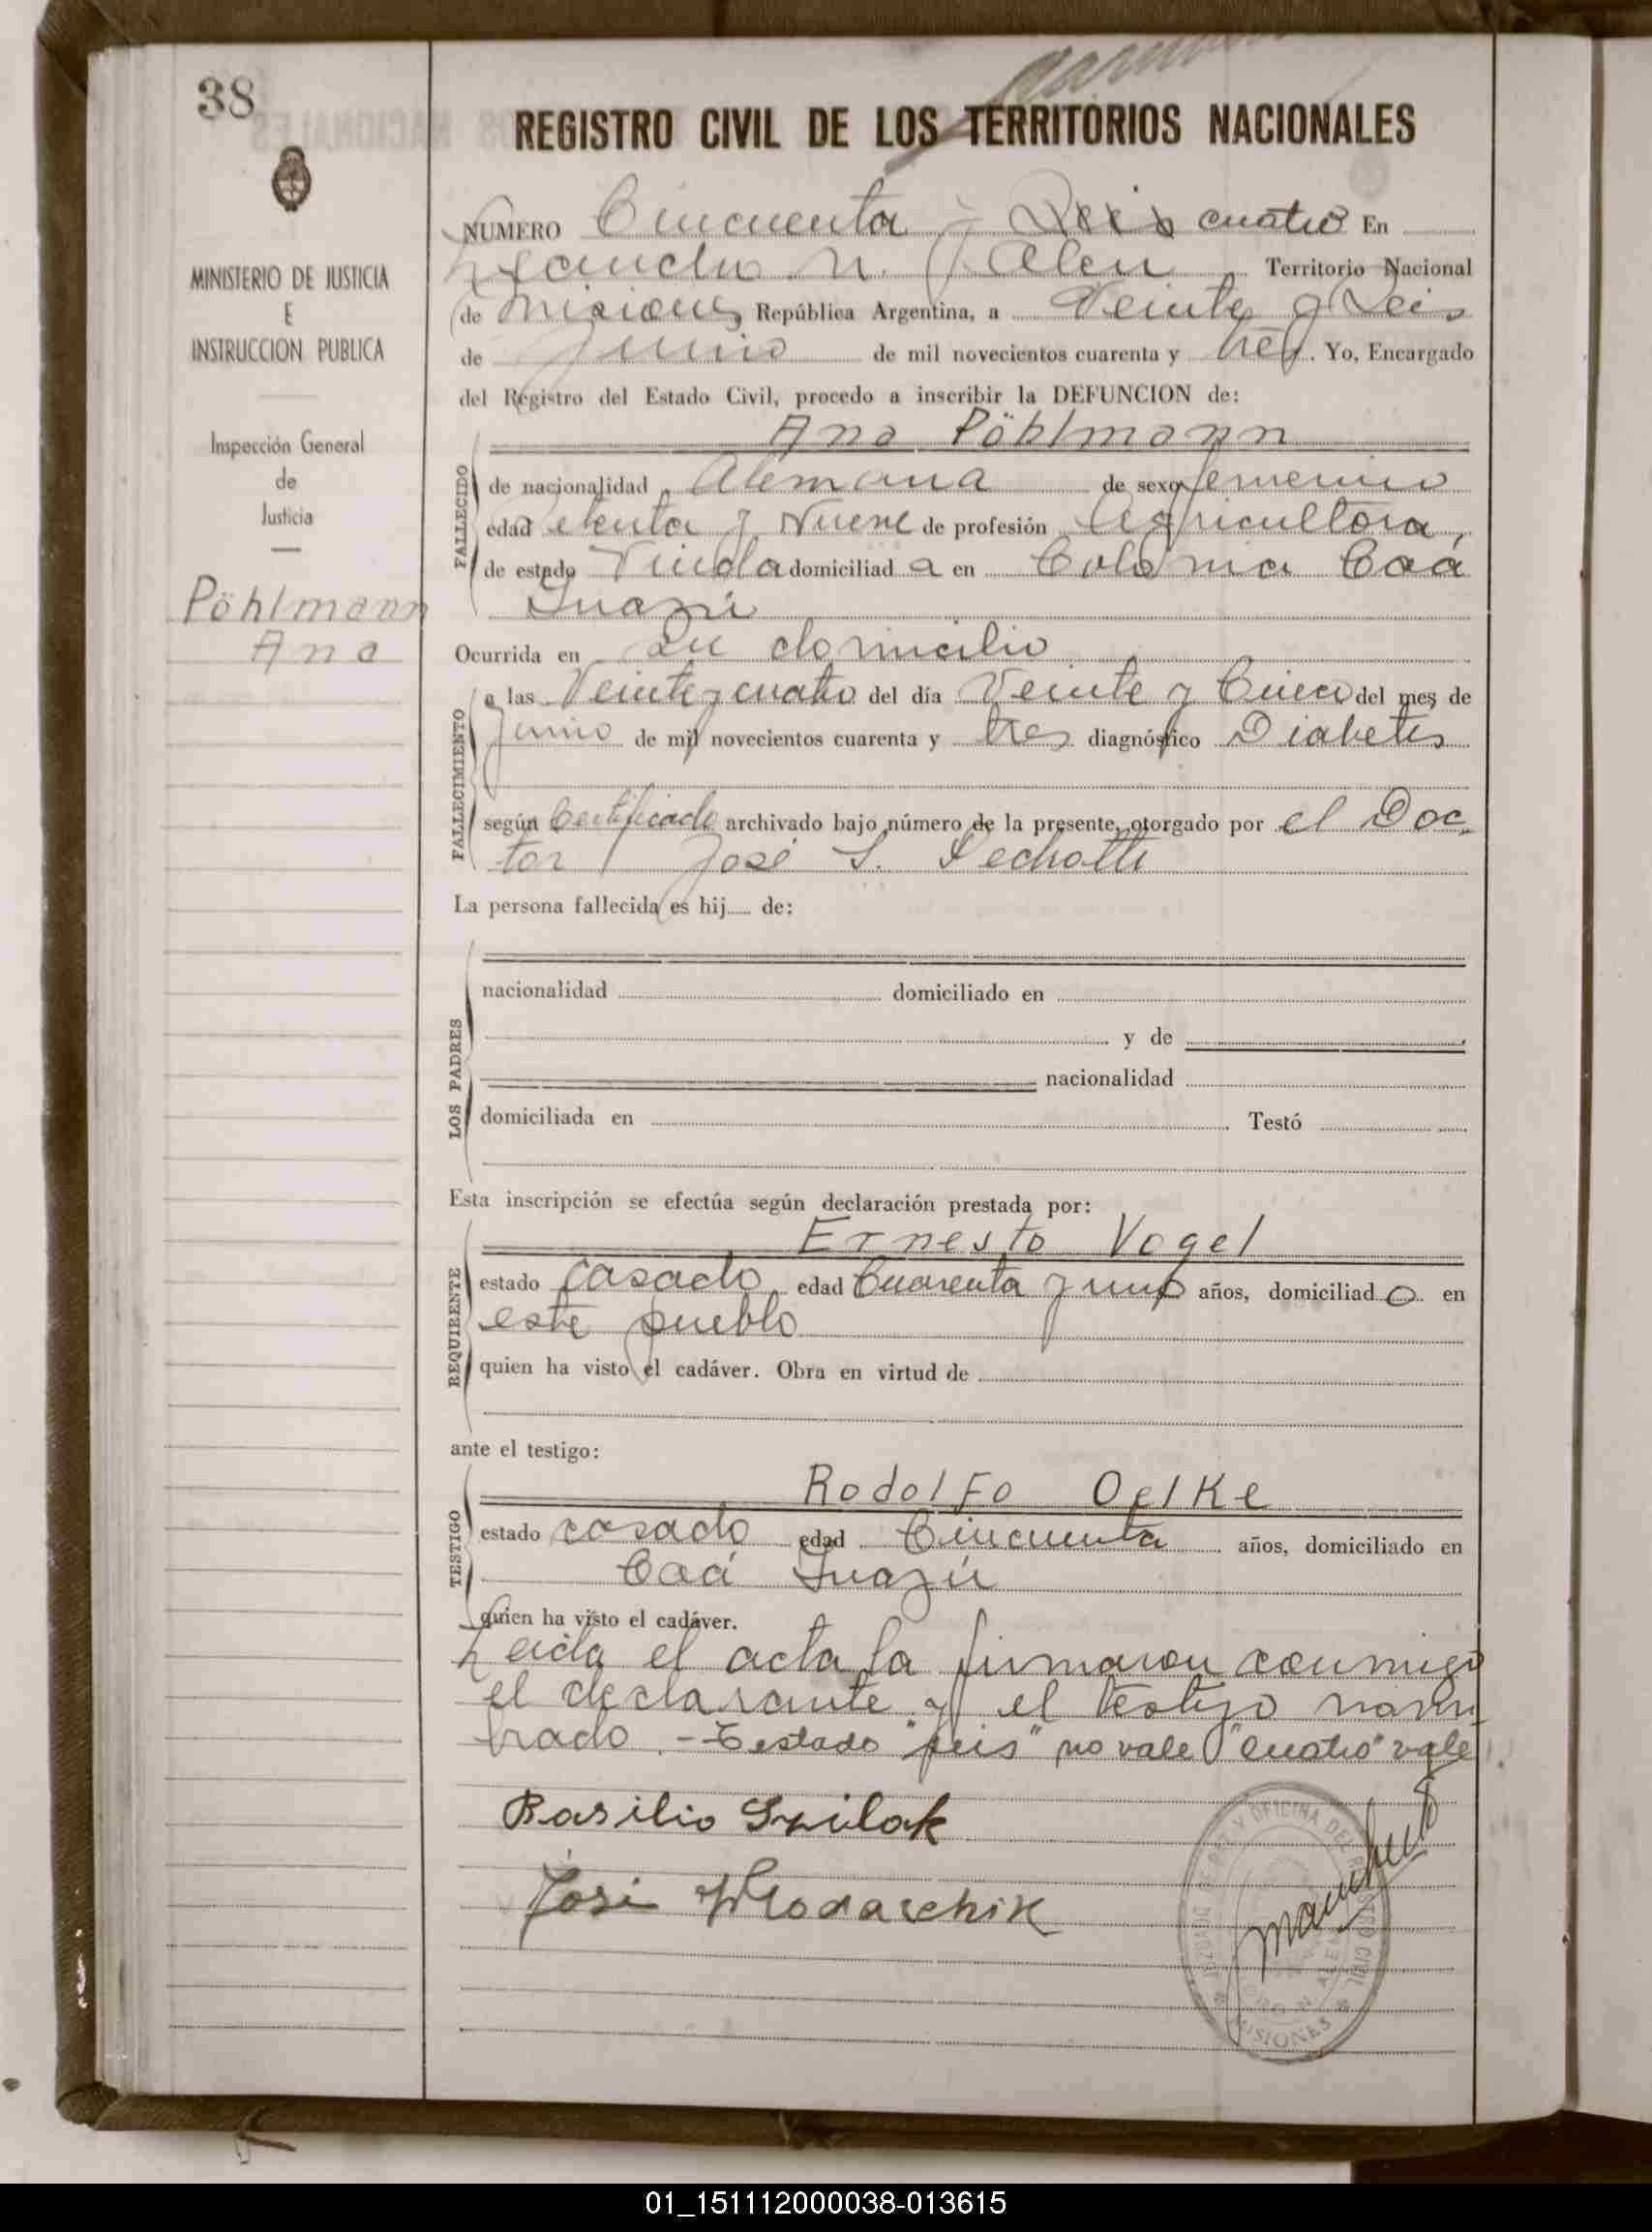 38
REGISTRO CIVIL DE LOS TERRITORIOS NACIONALES
MINISTERIO DE JUSTICIA
E
INSTRUCCION PUBLICA
Inspección General
de
Justicia
Pöhlmann
Ana
NUMERO Cincuenta y Seis cuatro En
Leandro N. Alem Territorio Nacional
de Misiones República Argentina, a Veinte y Seis
de Junio de mil novecientos cuarenta y tres. Yo, Encargado
del Registro del Estado Civil, procedo a inscribir la DEFUNCION de:
Ana Pöhlmann
FALLECIDO
de nacionalidad Alemana de sexo femenino
edad Setenta y Nueve de profesión Agricultora,
de estado Viuda domiciliad a en Colonia Caá
Guazú
Ocurrida en su domicilio
FALLECIMIENTO
a las Veinte y cuatro del día Veinte y Cinco del mes de
Junio de mil novecientos cuarenta y tres diagnóstico Diabetis
según Certificado archivado bajo número de la presente, otorgado por el Doc-
tor José S.
La persona fallecida es hij de:
LOS PADRES
nacionalidad domiciliado en
y de
nacionalidad
domiciliada en Testó
Esta inscripción se efectúa según declaración prestada por:
Ernesto Vogel
REQUIRENTE
estado casado edad Cuarenta y uno años, domiciliad o en
este pueblo
quien ha visto el cadáver. Obra en virtud de
ante el testigo:
Rodolfo Oelke
TESTIGO
estado casado edad Cincuenta años, domiciliado en
Caá Guazú
quien ha visto el cadáver.
Leida el acta la firmaron conmigo
el declarante y el testigo nom-
brado. - Testado "seis" no vale "cuatro" vale.
Basilio
José
MISIONES
01_151112000038-013615